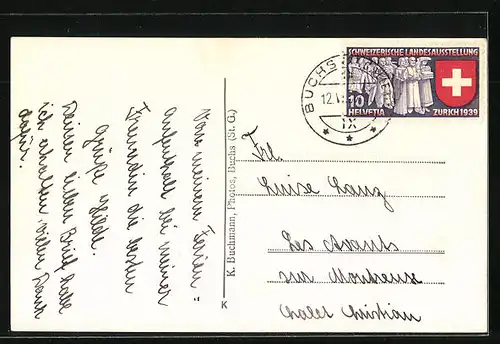 Vom meinem Ferien=
aufenthalt bei meiner
Freundin die besten
Grüße Hilde.
Deinen lieben Brief habe
ich erhalten, vielen Dank
dafür.
K. Buchmann, Photos, Buchs (St. G.)
K
BUCHS
12.V
IX
SCHWEIZERISCHE LANDESAUSSTELLUNG
10
HELVETIA
ZÜRICH 1939
Frl.
Luise Lanz
Les Avants
sur Montreux
Chalet Christian